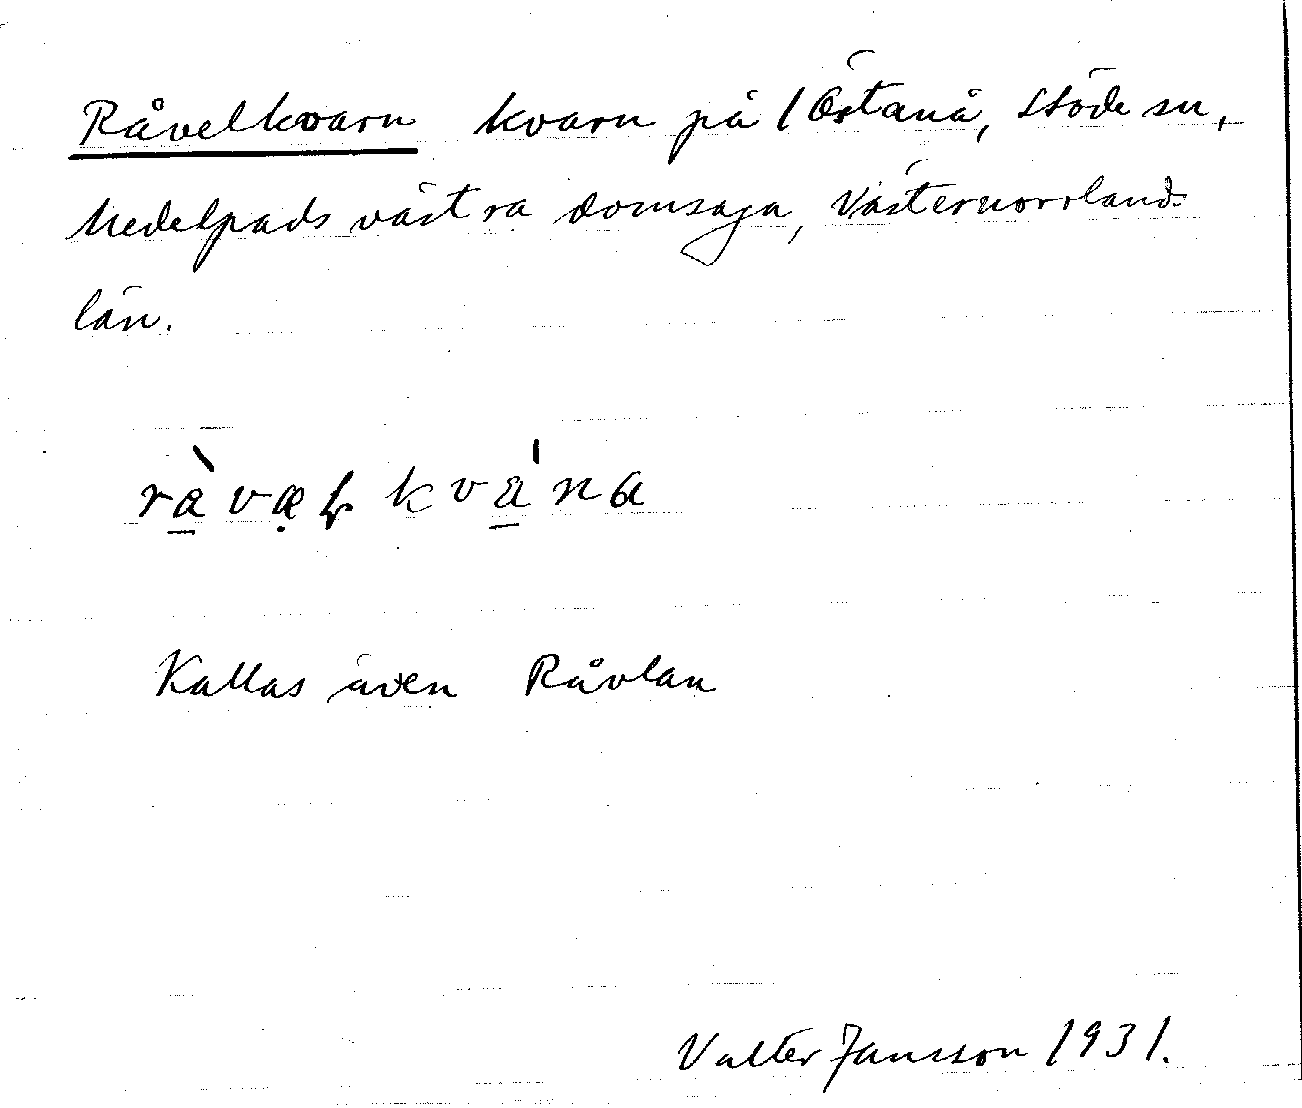 Råvelkvarn kvarn på 1 Östanå, Stöde sn,
Medelpads västra domsaga, Västernorrlands
län.
ràvæł kvána
Kallas även Råvlan
Valter Jansson 1931.